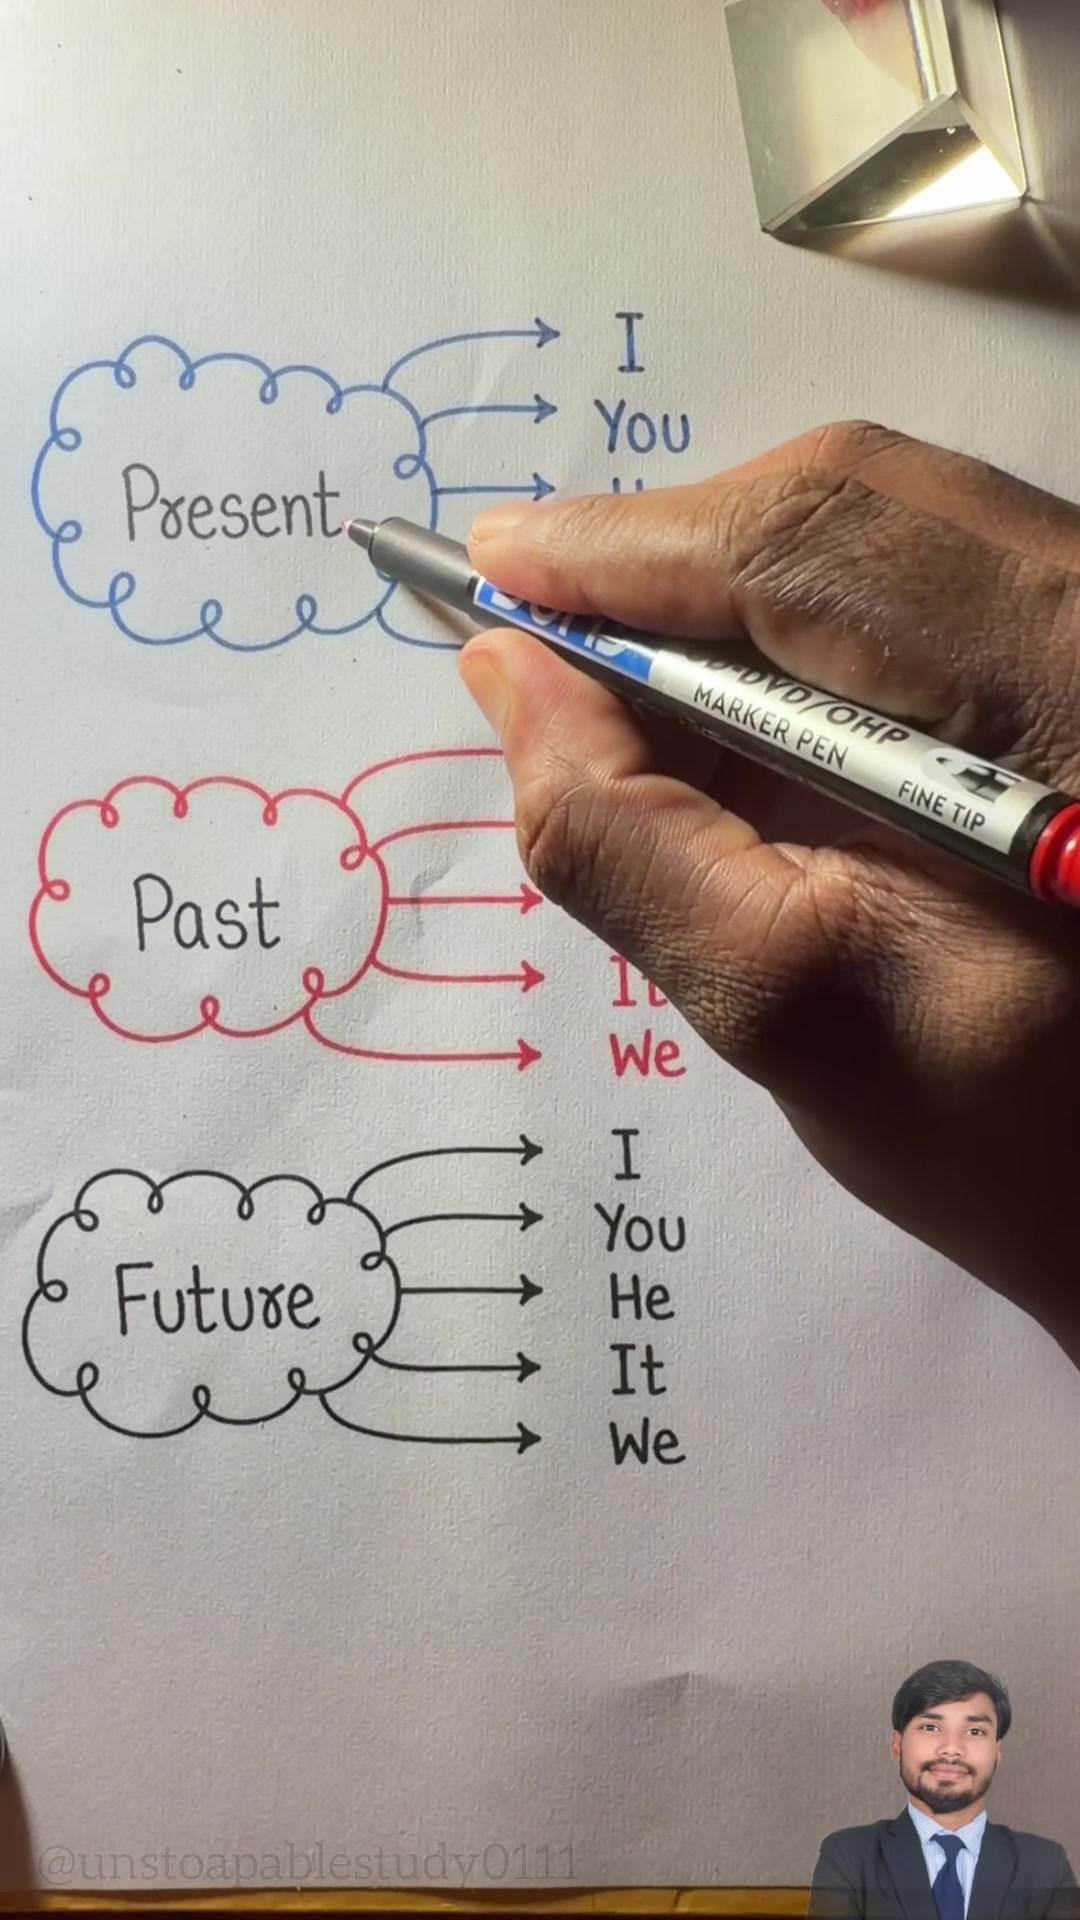 I
You
Present
Past
It
We
I
You
He
Future
It
We
CD-DVD/OHP
MARKER PEN
F
FINE TIP
@unstoapablestudy0111